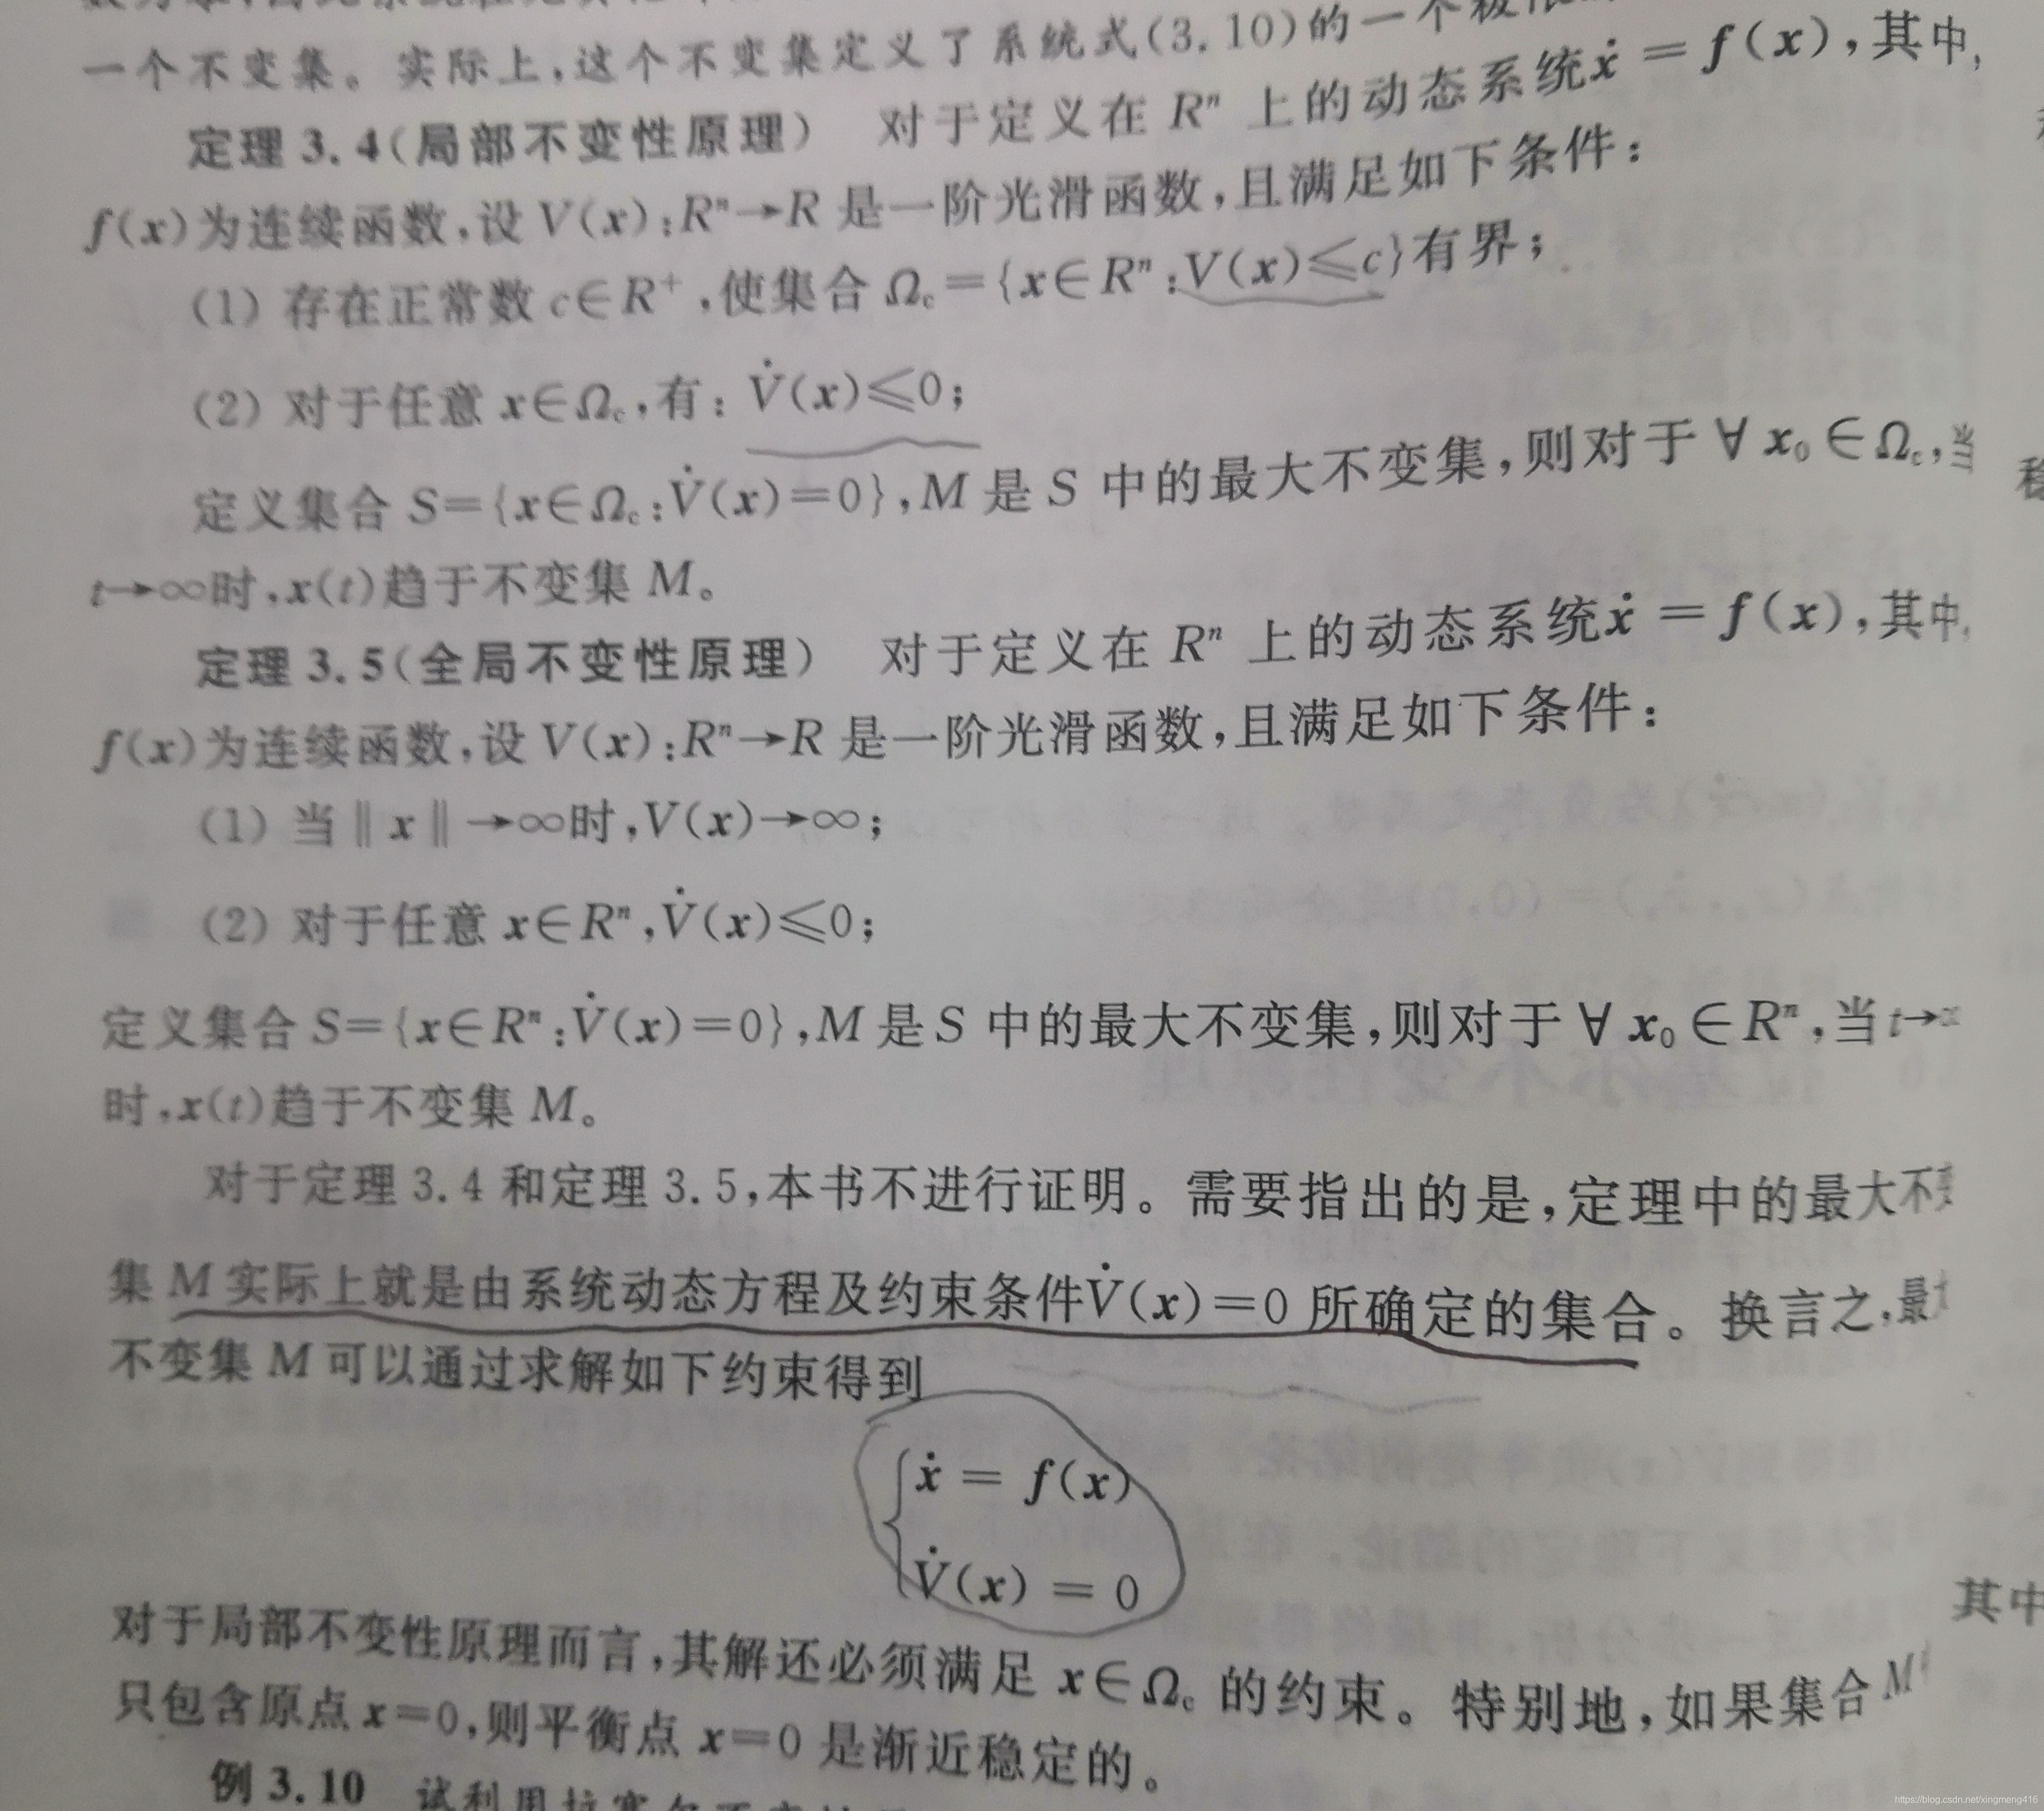 一个不变集。实际上,这个不变集定义了系统式(3.10)的一个极限
定理 3.4(局部不变性原理) 对于定义在 Rⁿ 上的动态系统ẋ = f(x),其中,
f(x)为连续函数,设 V(x):Rⁿ→R 是一阶光滑函数,且满足如下条件:
(1) 存在正常数 c∈R⁺,使集合 Ω꜀={x∈Rⁿ:V(x)≤c}有界;
(2) 对于任意 x∈Ω꜀,有: V̇(x)≤0;
定义集合 S={x∈Ω꜀:V̇(x)=0},M 是 S 中的最大不变集,则对于 ∀ x₀∈Ω꜀,当
稳
t→∞时,x(t)趋于不变集 M。
定理 3.5(全局不变性原理) 对于定义在 Rⁿ 上的动态系统ẋ = f(x),其中,
f(x)为连续函数,设 V(x):Rⁿ→R 是一阶光滑函数,且满足如下条件:
(1) 当‖x‖→∞时,V(x)→∞;
(2) 对于任意 x∈Rⁿ,V̇(x)≤0;
定义集合 S={x∈Rⁿ:V̇(x)=0},M 是 S 中的最大不变集,则对于 ∀ x₀∈Rⁿ,当 t→
时,x(t)趋于不变集 M。
对于定理 3.4 和定理 3.5,本书不进行证明。需要指出的是,定理中的最大不
集 M 实际上就是由系统动态方程及约束条件V̇(x)=0 所确定的集合。换言之,最
不变集 M 可以通过求解如下约束得到
ẋ = f(x)
V̇(x) = 0
其中
对于局部不变性原理而言,其解还必须满足 x∈Ω꜀ 的约束。特别地,如果集合 M
只包含原点 x=0,则平衡点 x=0 是渐近稳定的。
例 3.10 试利用拉塞尔不变
https://blog.csdn.net/xingmeng416